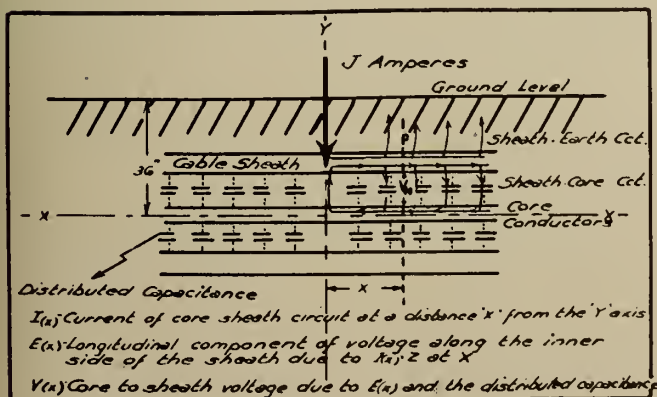 Y
J Amperes
Ground Level
P
Sheath-Earth Cct.
36"
Cable Sheath
Sheath-Core Cct.
X
Core
X
Conductors
Distributed Capacitance
x
I(x)-Current of core sheath circuit at a distance 'x' from the 'Y' axis
E(x)-Longitudinal component of voltage along the inner
side of the sheath due to I(x), Z at X
V(x)-Core to sheath voltage due to E(x) and the distributed capacitance